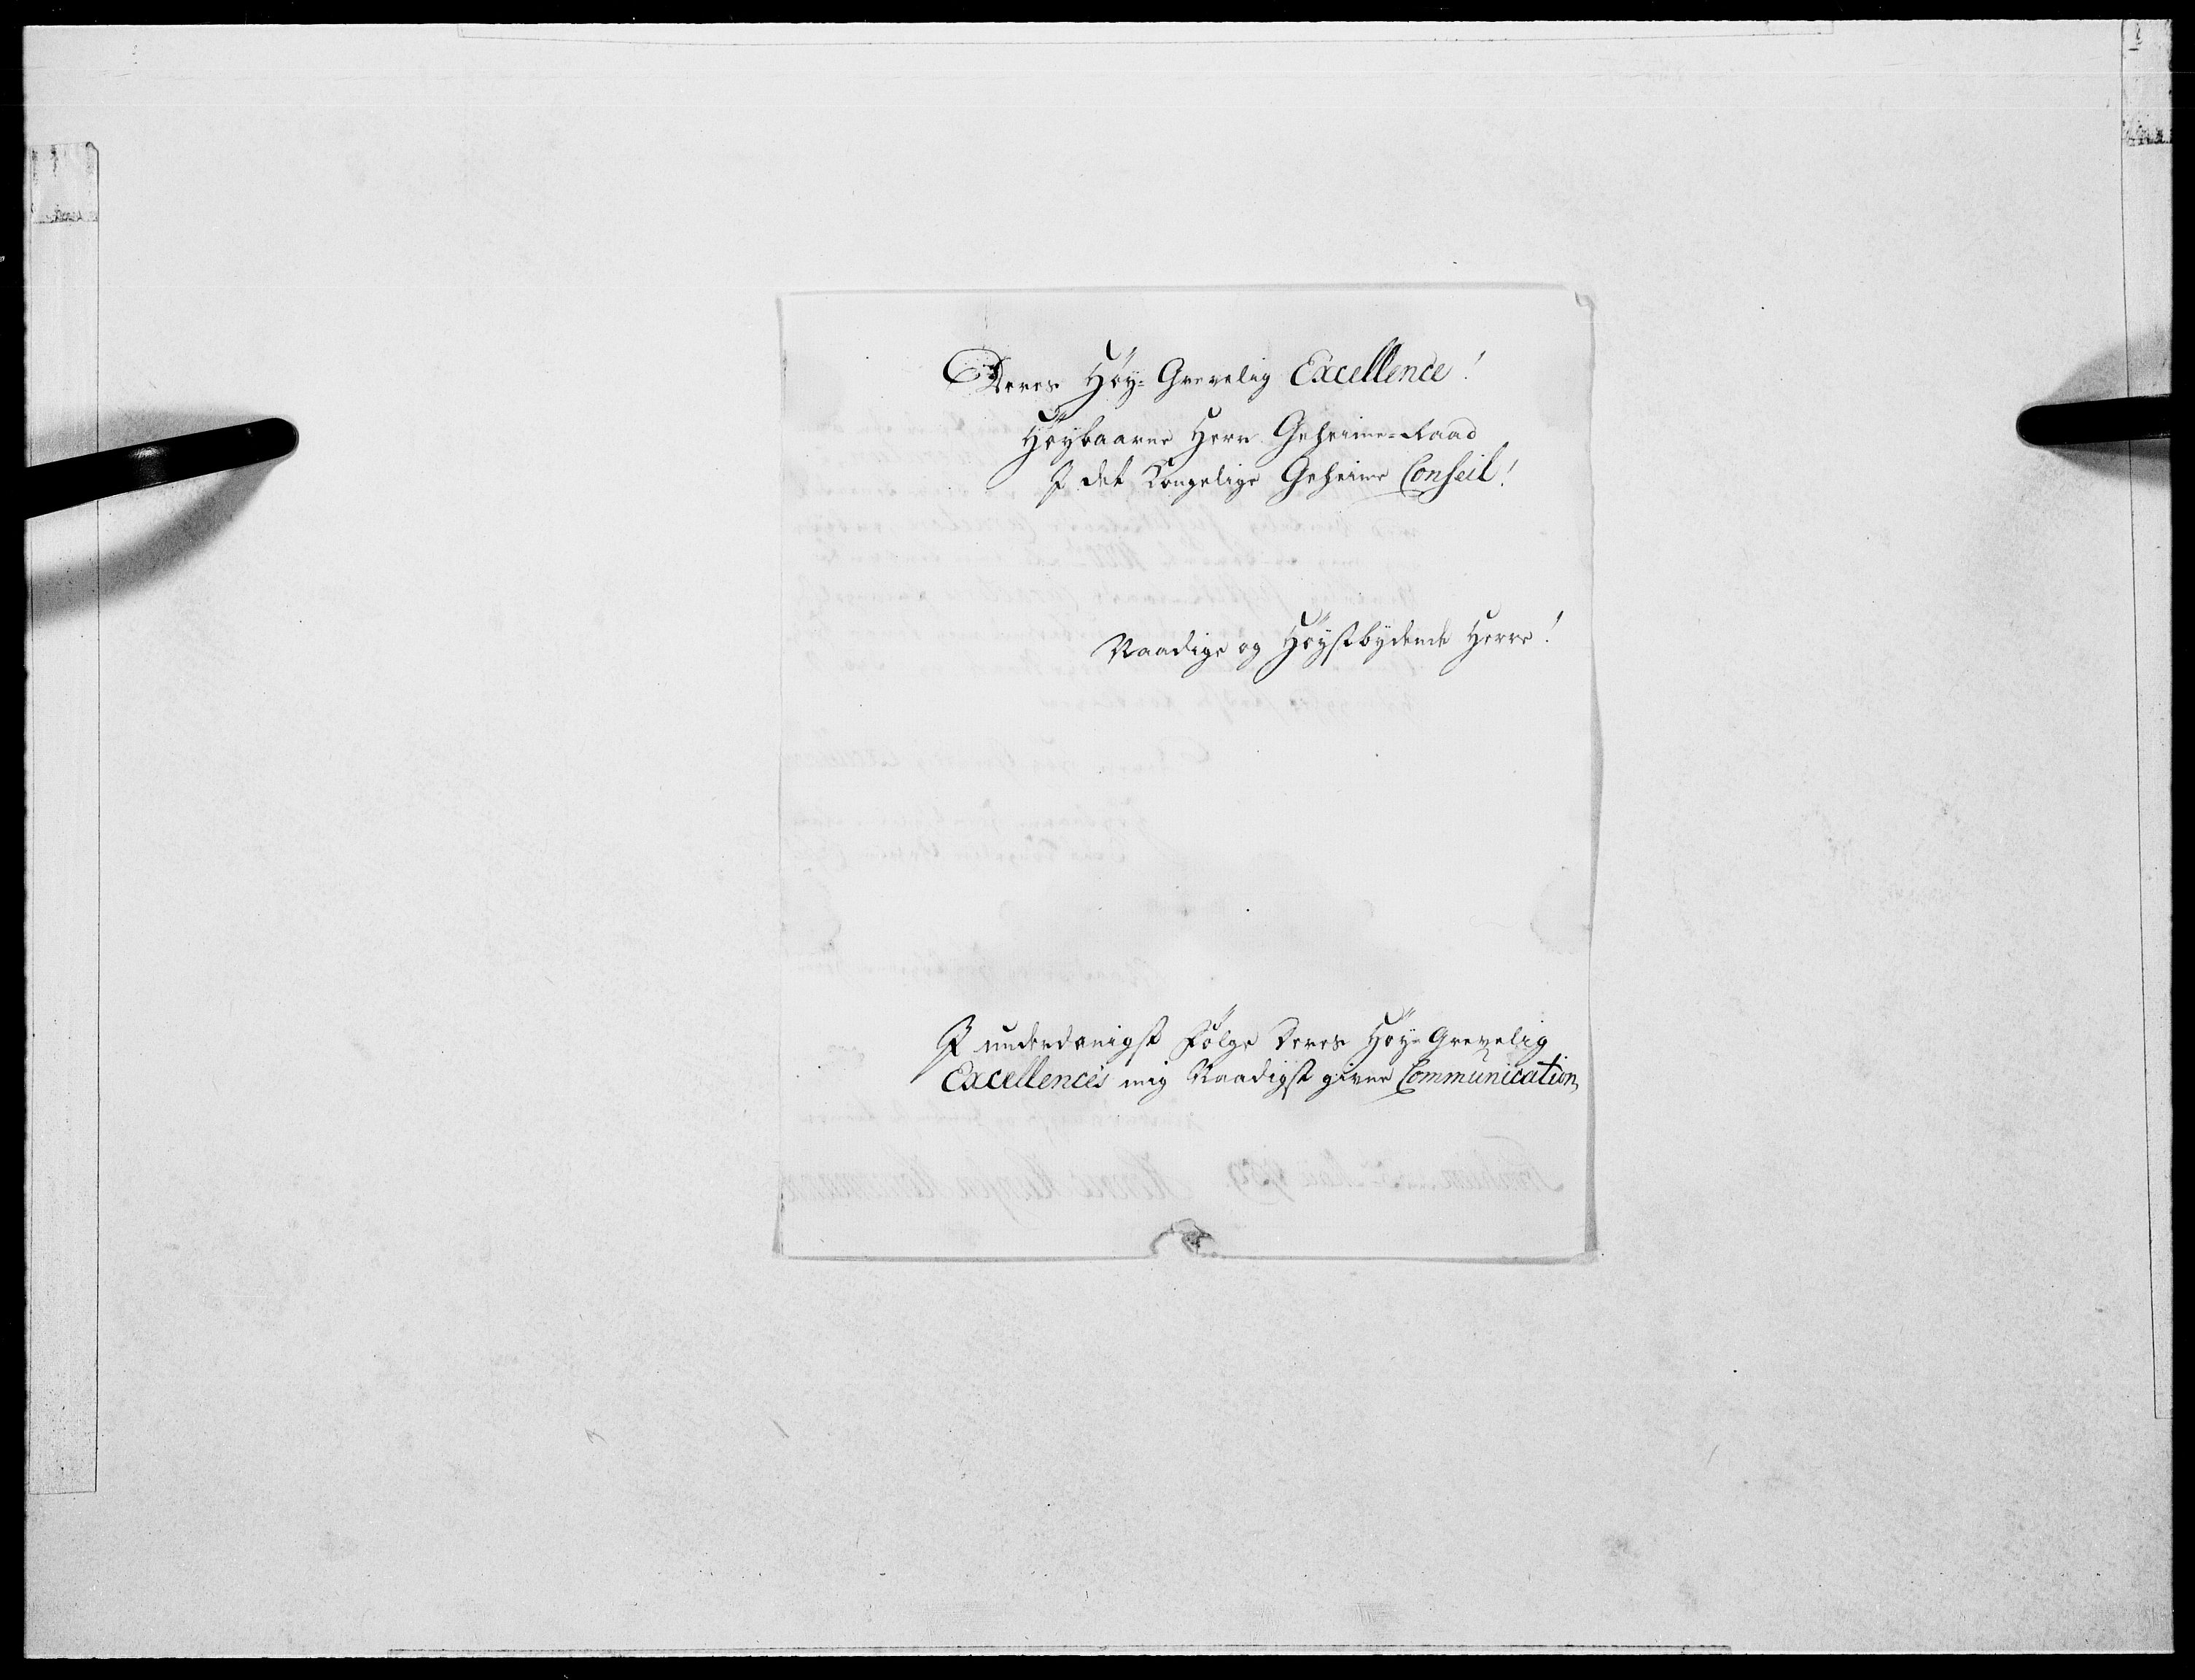 Deres Høy-Grevelig Excellence!
Høybaarne Herr Geheime-Raad
I det Kongelige Geheime Conseil!
Naadige og Høystbydende Herre!
I underdanigst Følge Deres Høy-Grevelig
Excellence's mig Naadigst givne Communication,